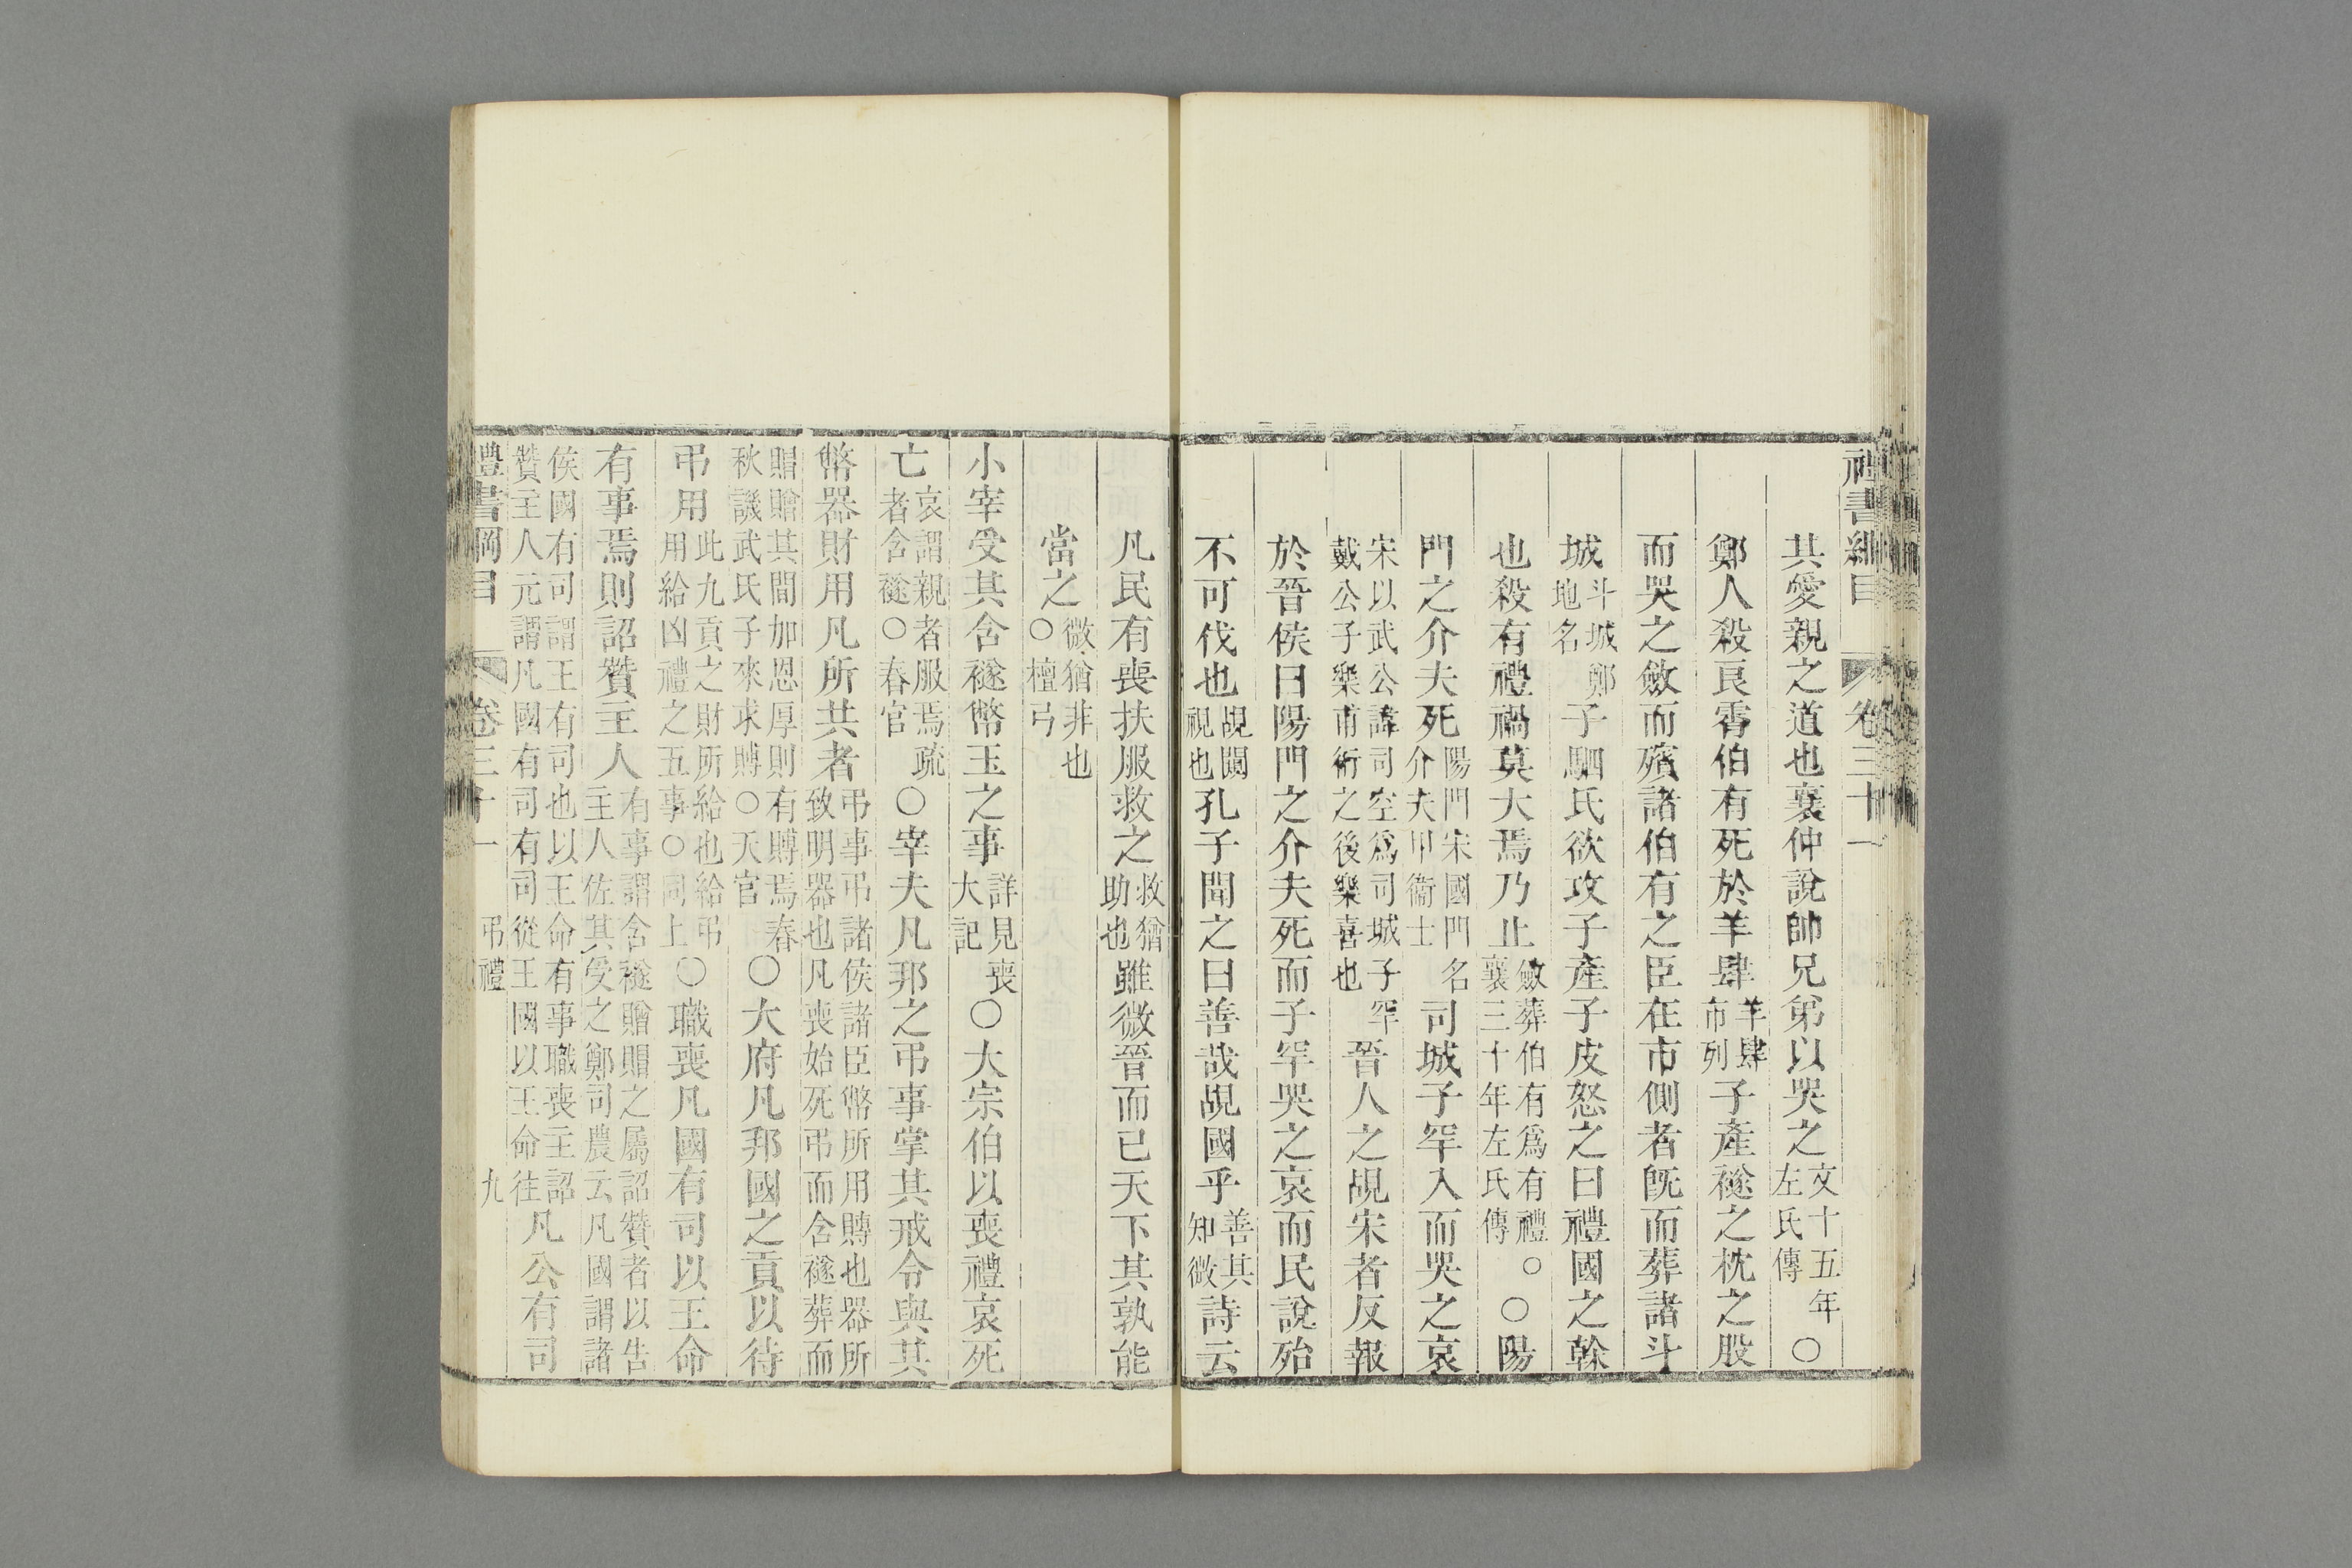 禮書綱目 卷三十一
其愛親之道也襄仲說帥兄弟以哭之文十五年左氏傳〇
鄭人殺良霄伯有死於羊肆羊肆市列子產襚之枕之股
而哭之斂而殯諸伯有之臣在市側者旣而葬諸斗
城斗城鄭地名子駟氏欲攻子產子皮怒之曰禮國之榦
也殺有禮禍莫大焉乃止斂葬伯有爲有禮〇襄三十年左氏傳〇陽
門之介夫死陽門宋國門名介夫甲衞士司城子罕入而哭之哀
宋以武公諱司空爲司城子罕戴公子樂甫術之後樂喜也晉人之覘宋者反報
於晉侯曰陽門之介夫死而子罕哭之哀而民說殆
不可伐也覘闚視也孔子聞之曰善哉覘國乎善其知微詩云
凡民有喪扶服救之救猶助也雖微晉而已天下其孰能
當之微猶非也〇檀弓
小宰受其含襚幣玉之事詳見喪大記〇大宗伯以喪禮哀死
亡哀謂親者服焉疏者含襚〇春官〇宰夫凡邦之弔事掌其戒令與其
幣器財用凡所共者弔事弔諸侯諸臣幣所用賻也器所致明器也凡喪始死弔而含襚葬而
賵贈其間加恩厚則有賻焉春秋譏武氏子來求賻〇天官〇大府凡邦國之貢以待
弔用此九貢之財所給也給弔用給凶禮之五事〇同上〇職喪凡國有司以王命
有事焉則詔贊主人有事謂含襚贈賵之屬詔贊者以告主人佐其受之鄭司農云凡國謂諸
侯國有司謂王有司也以王命有事職喪主詔贊主人元謂凡國有司有司從王國以王命往凡公有司
禮書綱目 卷三十一 弔禮 九